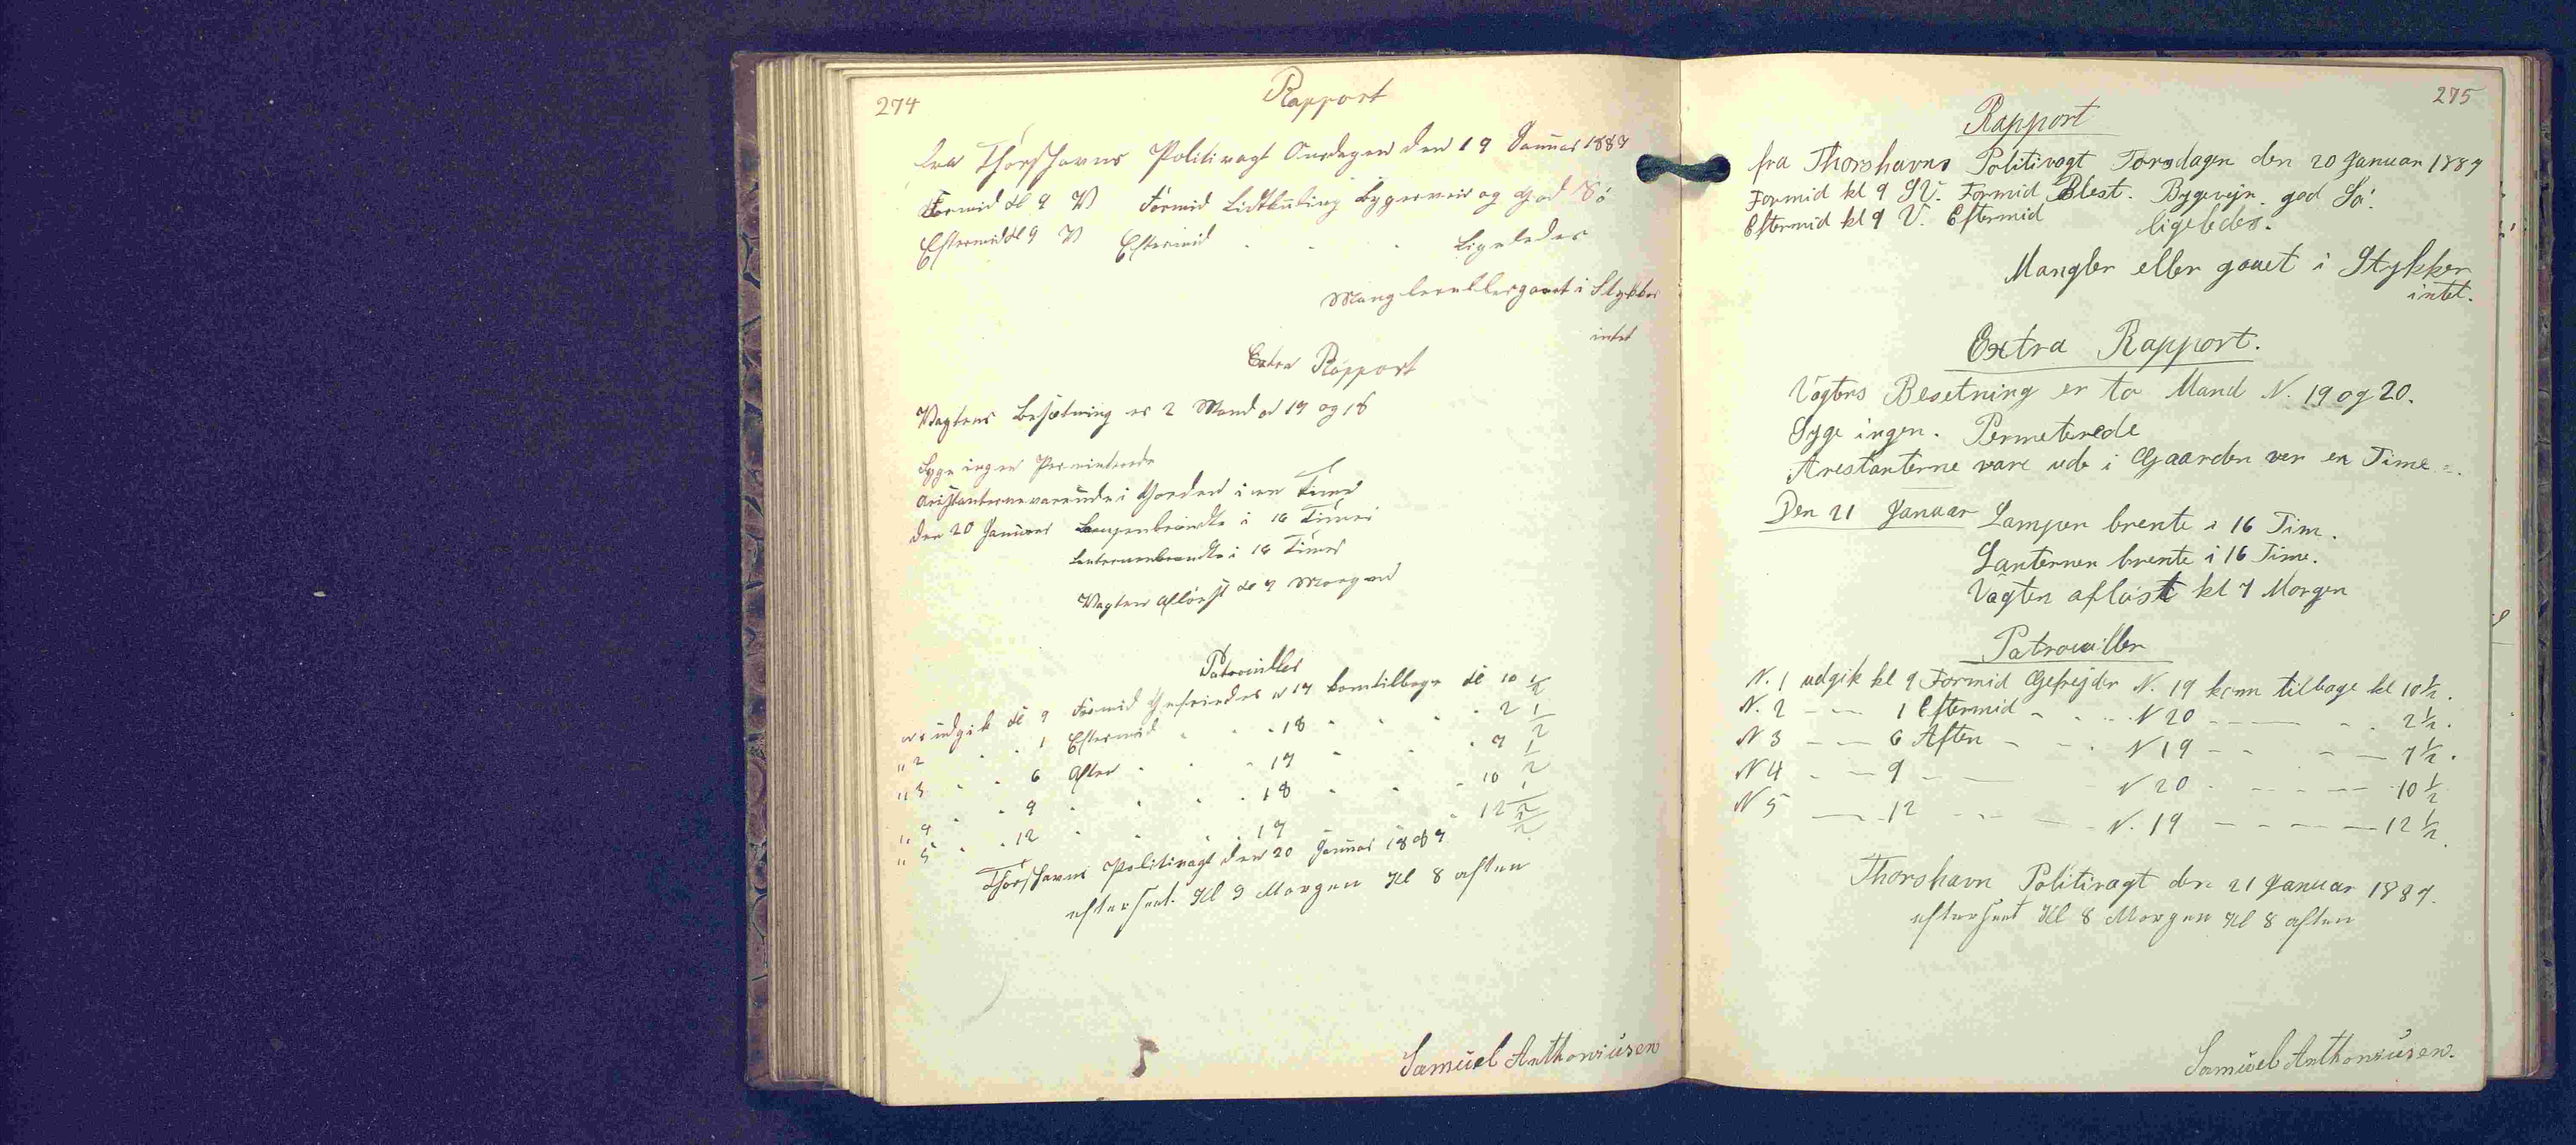 274
Rapport
fra Thorshavns Politivagt Onsdagen den 19 Januar 1887
Formid kl 9 V Formid Lidtkuling Bygerveir og God Sö
Eftermid kl 9 V Eftermid " " " Ligeledes
Mangler eller gaaet i Stykker
intet
Extra Rapport
Vagtens Besætning er 2 Mand N 17 og 18
Syge ingen Perminterede
Aristanterne var ude i Gorden i en Time
den 20 Januar Lampen brændte i 16 Timer
Lanternen brændte i 16 Timer
Vagten Aflöest kl 7 Morgen
Patrouiller
N 1 udgik kl 9 Formid Gefreider N 17 kom tilbage kl 10 1/2
" 2 " " 1 Eftermid " " " 18 " " " " 2 1/2
" 3 " " 6 Aften " " " 17 " " " 7 1/2
" 4 " " 9 " " " " 18 " " " 10 1/2
" 5 " " 12 " " " " 17 " 12 1/2
Thorshavns Politivagt den 20 Januar 1887
efterseet Kl 9 Morgen Kl 8 aften
Samuel Anthoniusen
275
Rapport
fra Thorshavns Politivagt Torsdagen den 20 Januar 1887
Formid kl 9 SV. Formid Blest. Bygevejr. god Sö.
Eftermid kl 9 V. Eftermid ligeledes.
Mangler eller gaaet i Stykker
intet.
Extra Rapport.
Vagtens Besetning er to Mand N. 19 og 20.
Syge ingen. Permeterede
Arestanterne vare ude i Gaarden ver en Time
Den 21 Januar Lampen brente i 16 Tim.
Lanternen brente i 16 Time.
Vagten aflöst kl 7 Morgen
Patrouiller
N. 1 udgik kl 9 Formid Gefrejder N. 19 kom tilbage kl 10 1/2.
N. 2 — — 1 Eftermid - - - N 20 - — - - 2 1/2.
N 3 — — 6 Aften - - - N 19 - - - — 7 1/2.
N 4 - — 9 - — - N 20 - - - — 10 1/2
N 5 — - 12 - - — - N. 19 — - - — 12 1/2.
Thorshavn Politivagt den 21 Januar 1887.
efterseet Kl 8 Morgen Kl 8 aften
Samuel Anthoniusen.